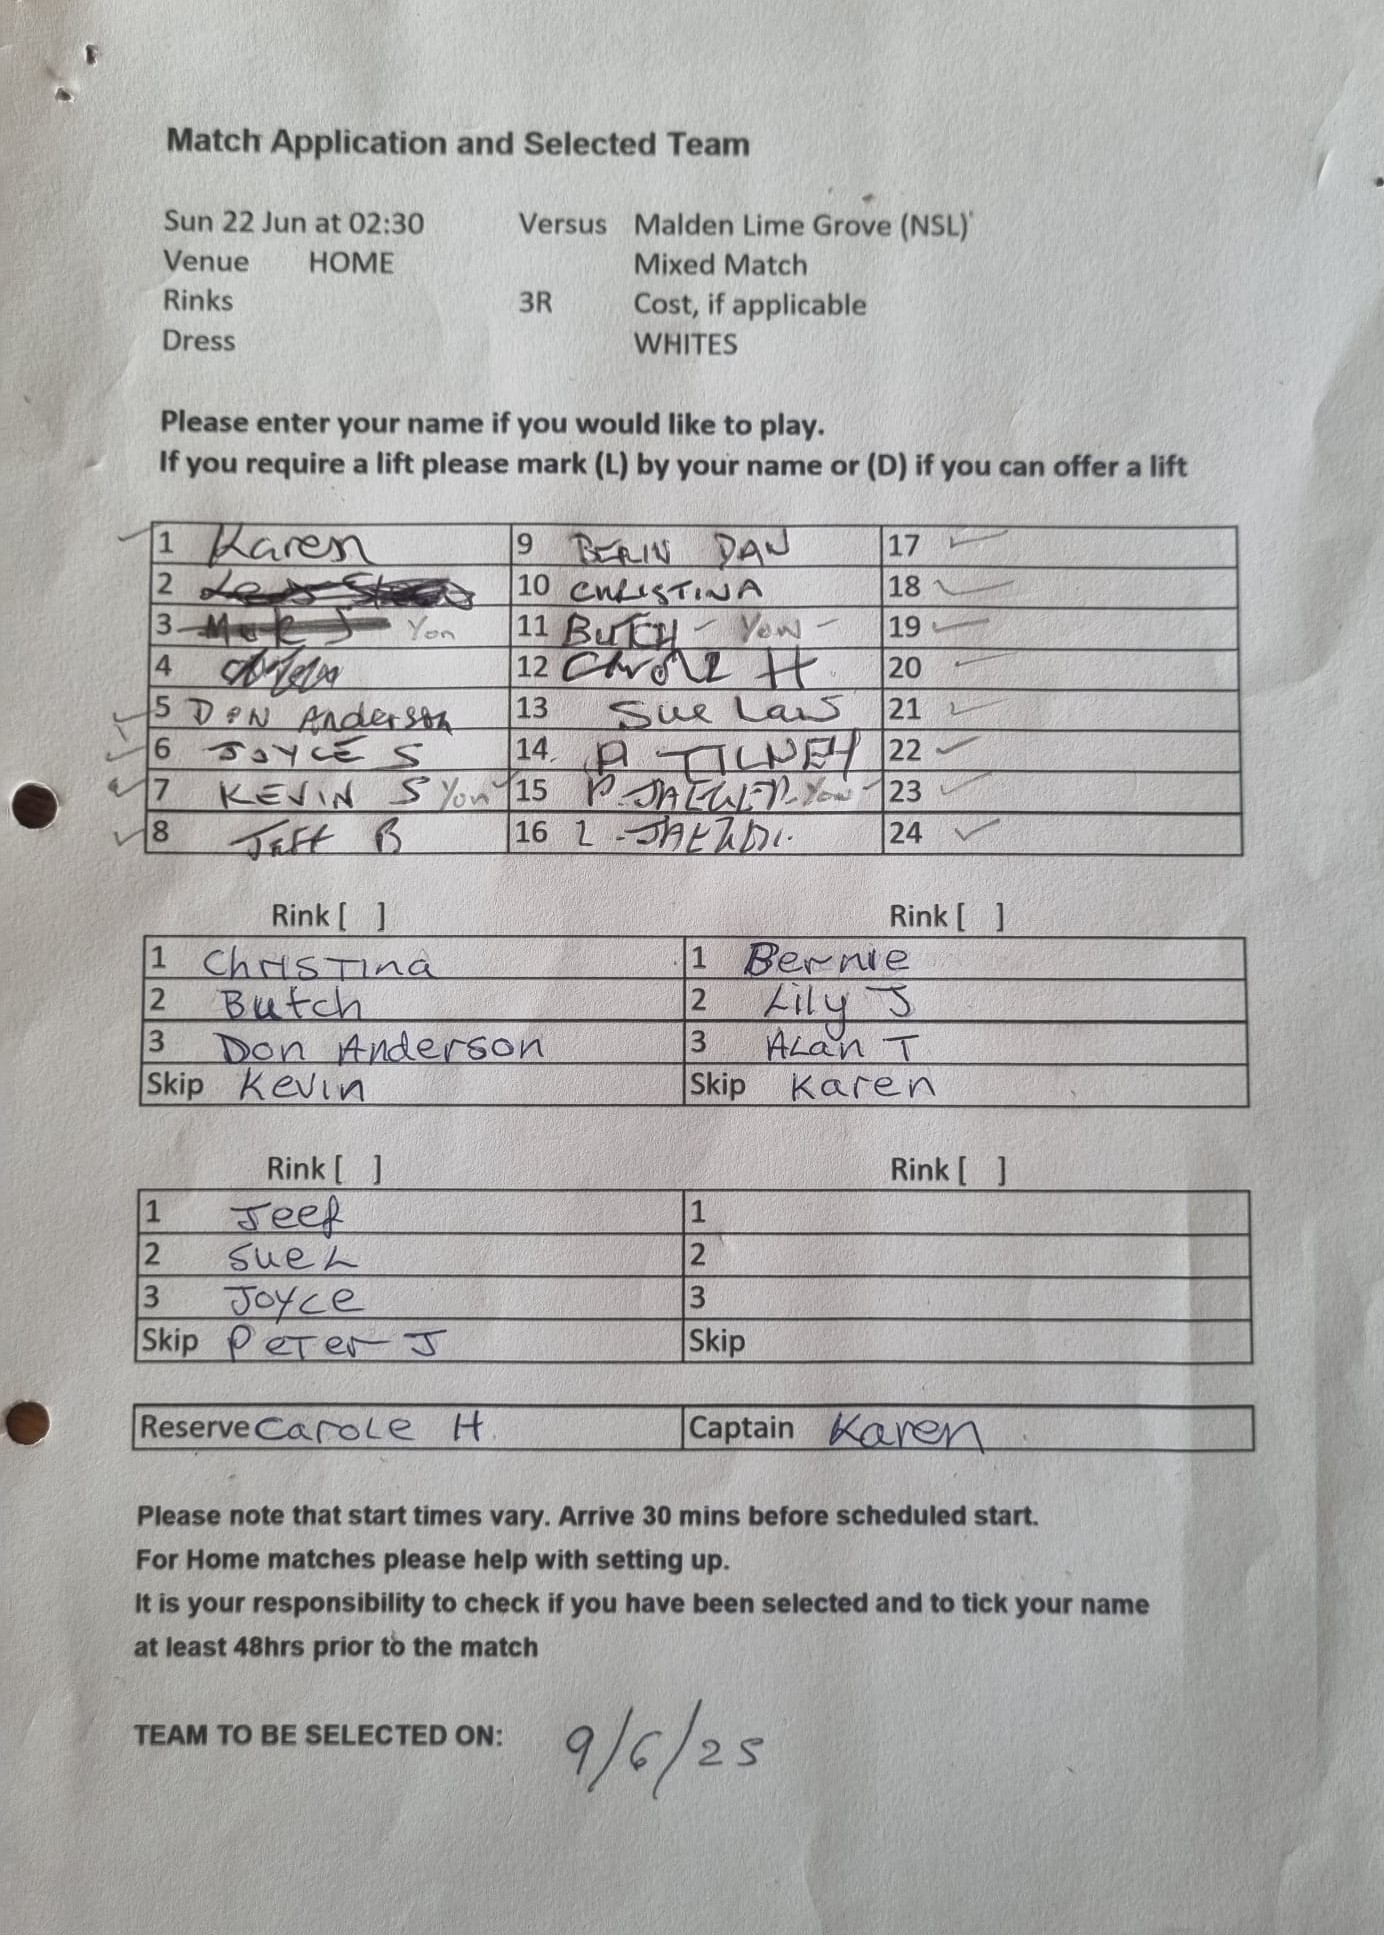 Match Application and Selected Team
Sun 22 Jun at 02:30 Versus Malden Lime Grove (NSL)
Venue HOME Mixed Match
Rinks 3R Cost, if applicable
Dress WHITES
Please enter your name if you would like to play.
If you require a lift please mark (L) by your name or (D) if you can offer a lift
1 Karen 9 DAN 17
2 10 CHRISTINA 18
3 Mark J Yon 11 BUTCH - Yow - 19
4 12 H 20
5 DON Anderson 13 Sue Laws 21
6 JOYCE S 14 A TILNEY 22
7 KEVIN S Yon 15 P. 23
8 Jeff B 16 24
Rink [ ] Rink [ ]
1 Christina 1 Bernie
2 Butch 2 Lily J
3 Don Anderson 3 ALan T
Skip Kevin Skip Karen
Rink [ ] Rink [ ]
1 Jeef 1
2 Sue L 2
3 Joyce 3
Skip Peter J Skip
Reserve Carole H. Captain Karen
Please note that start times vary. Arrive 30 mins before scheduled start.
For Home matches please help with setting up.
It is your responsibility to check if you have been selected and to tick your name
at least 48hrs prior to the match
TEAM TO BE SELECTED ON: 9/6/25